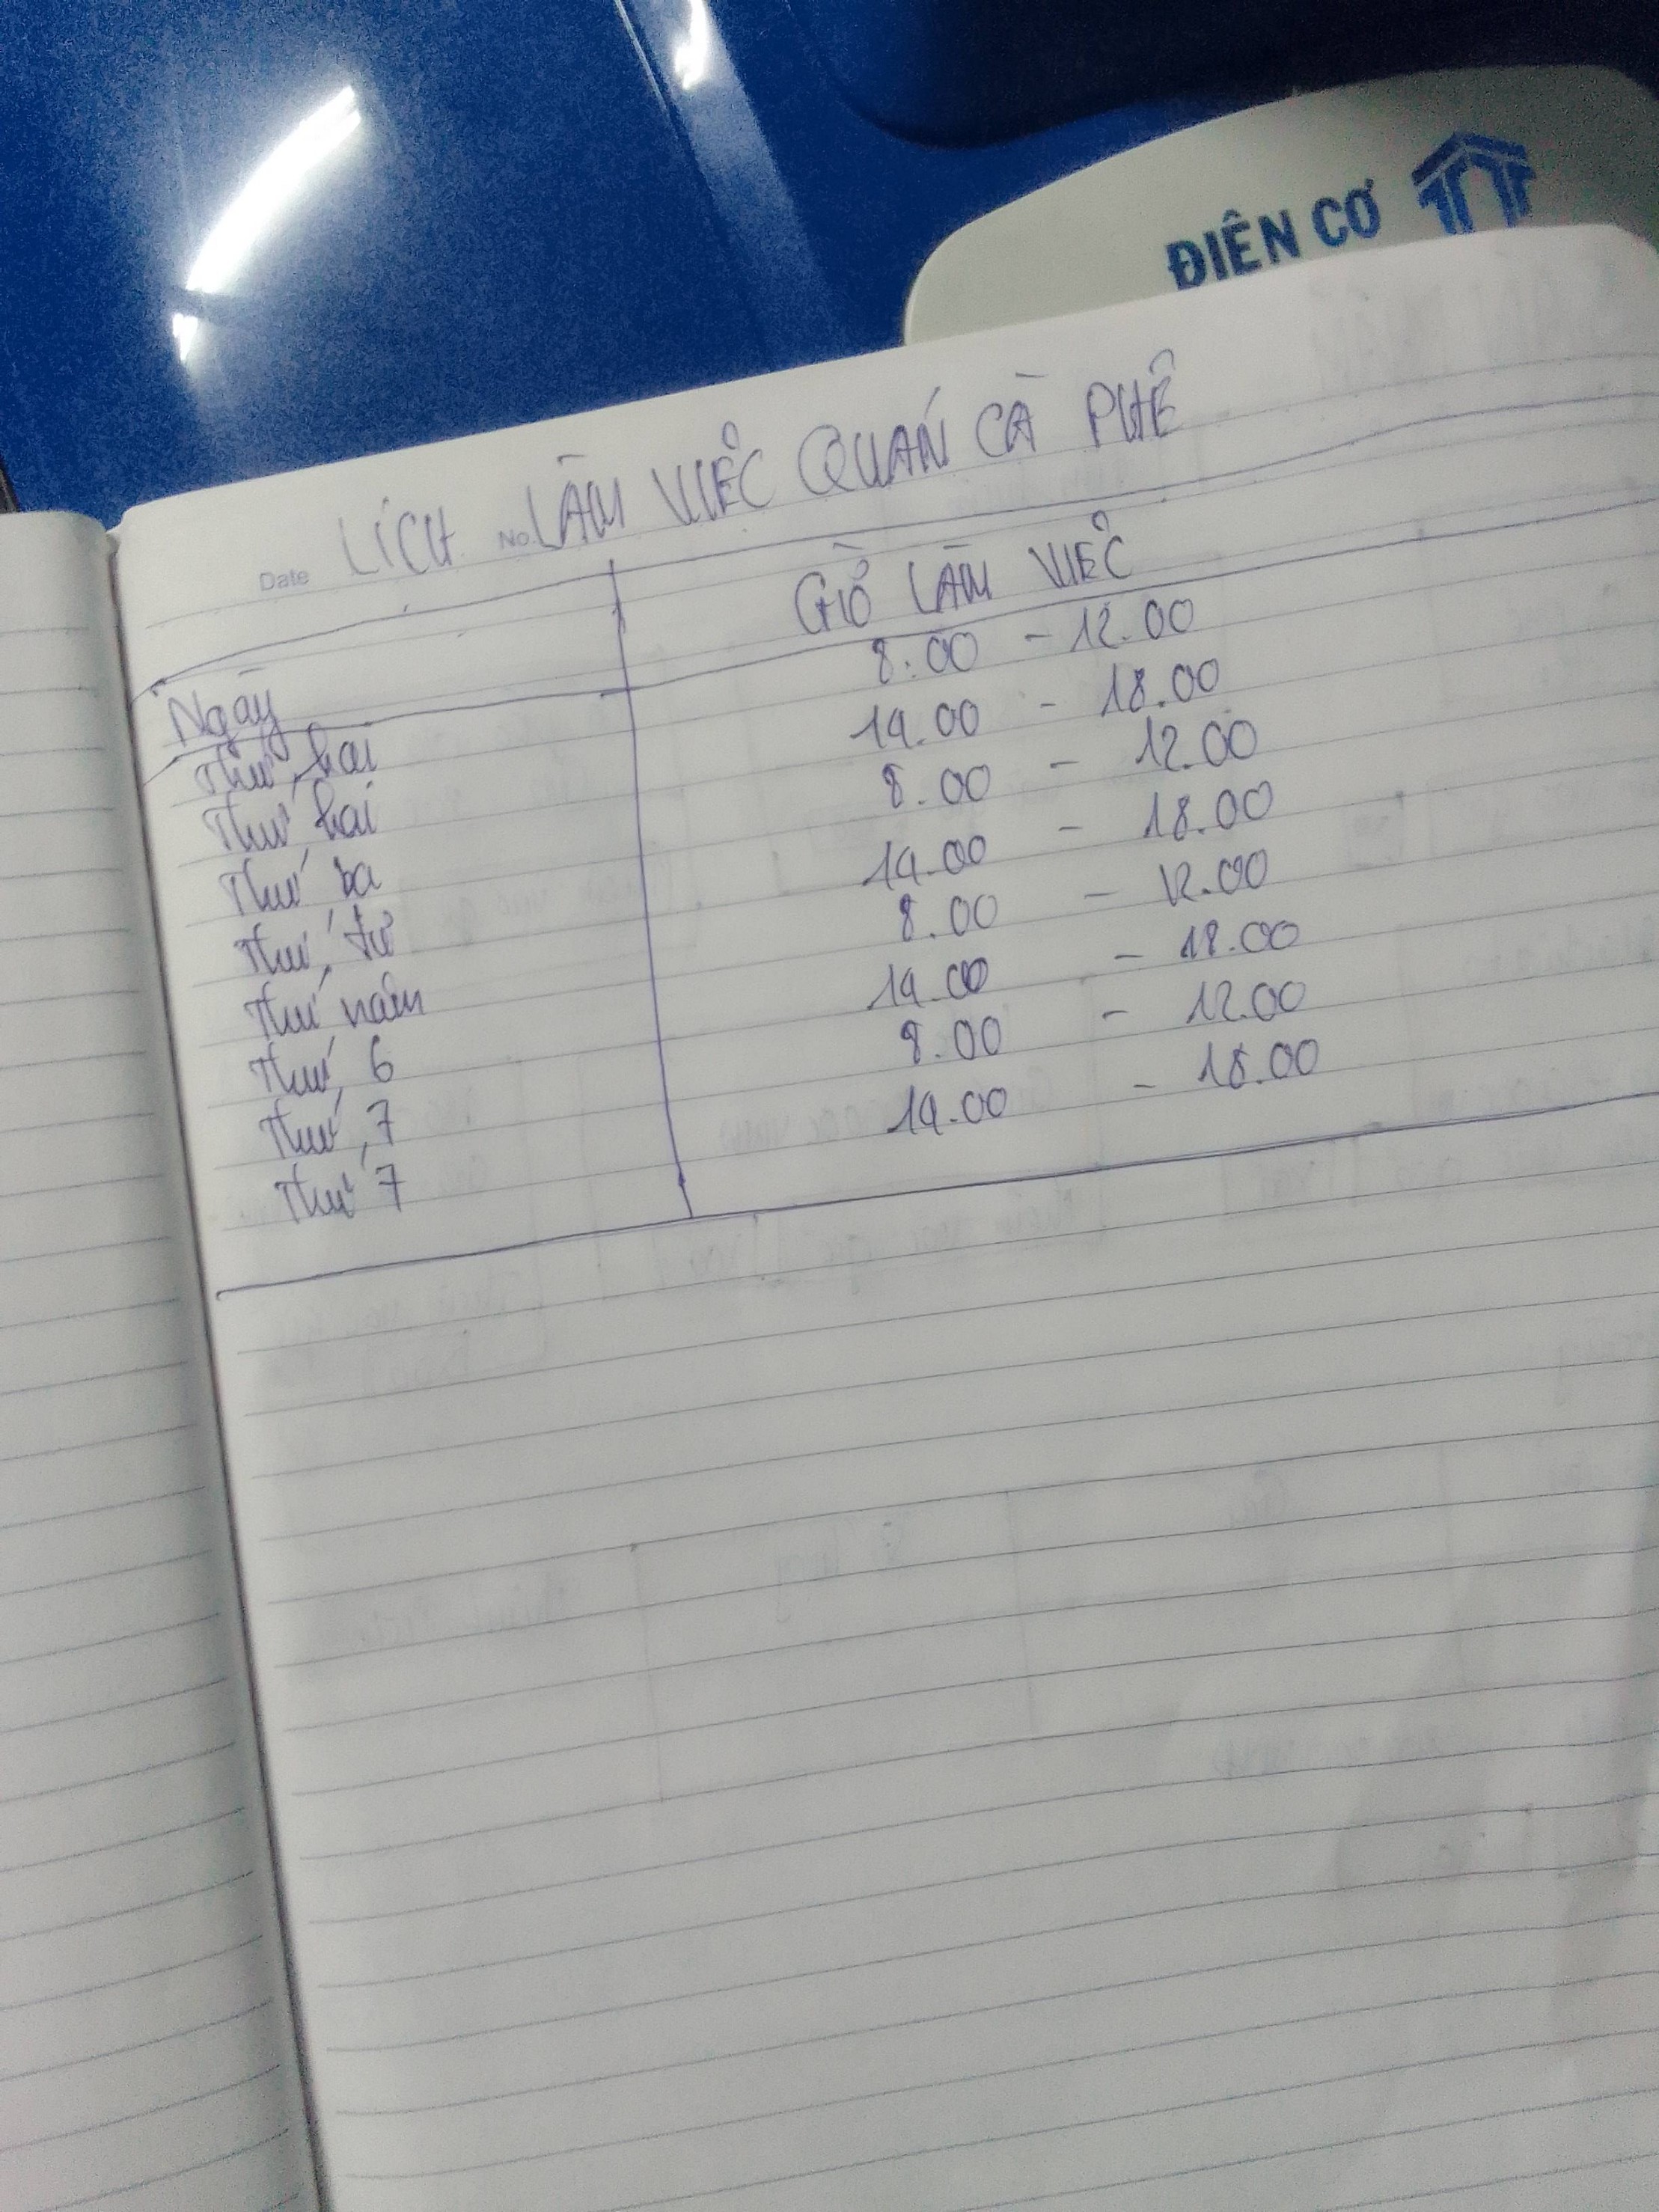 ĐIÊN CƠ
Date No.
LỊCH LÀM VIỆC QUÁN CÀ PHÊ
Ngày GIỜ LÀM VIỆC
Thứ hai 8.00 - 12.00
Thứ hai 14.00 - 18.00
Thứ ba 8.00 - 12.00
Thứ tư 14.00 - 18.00
Thứ năm 8.00 - 12.00
Thứ 6 14.00 - 18.00
Thứ 7 8.00 - 12.00
Thứ 7 14.00 - 18.00